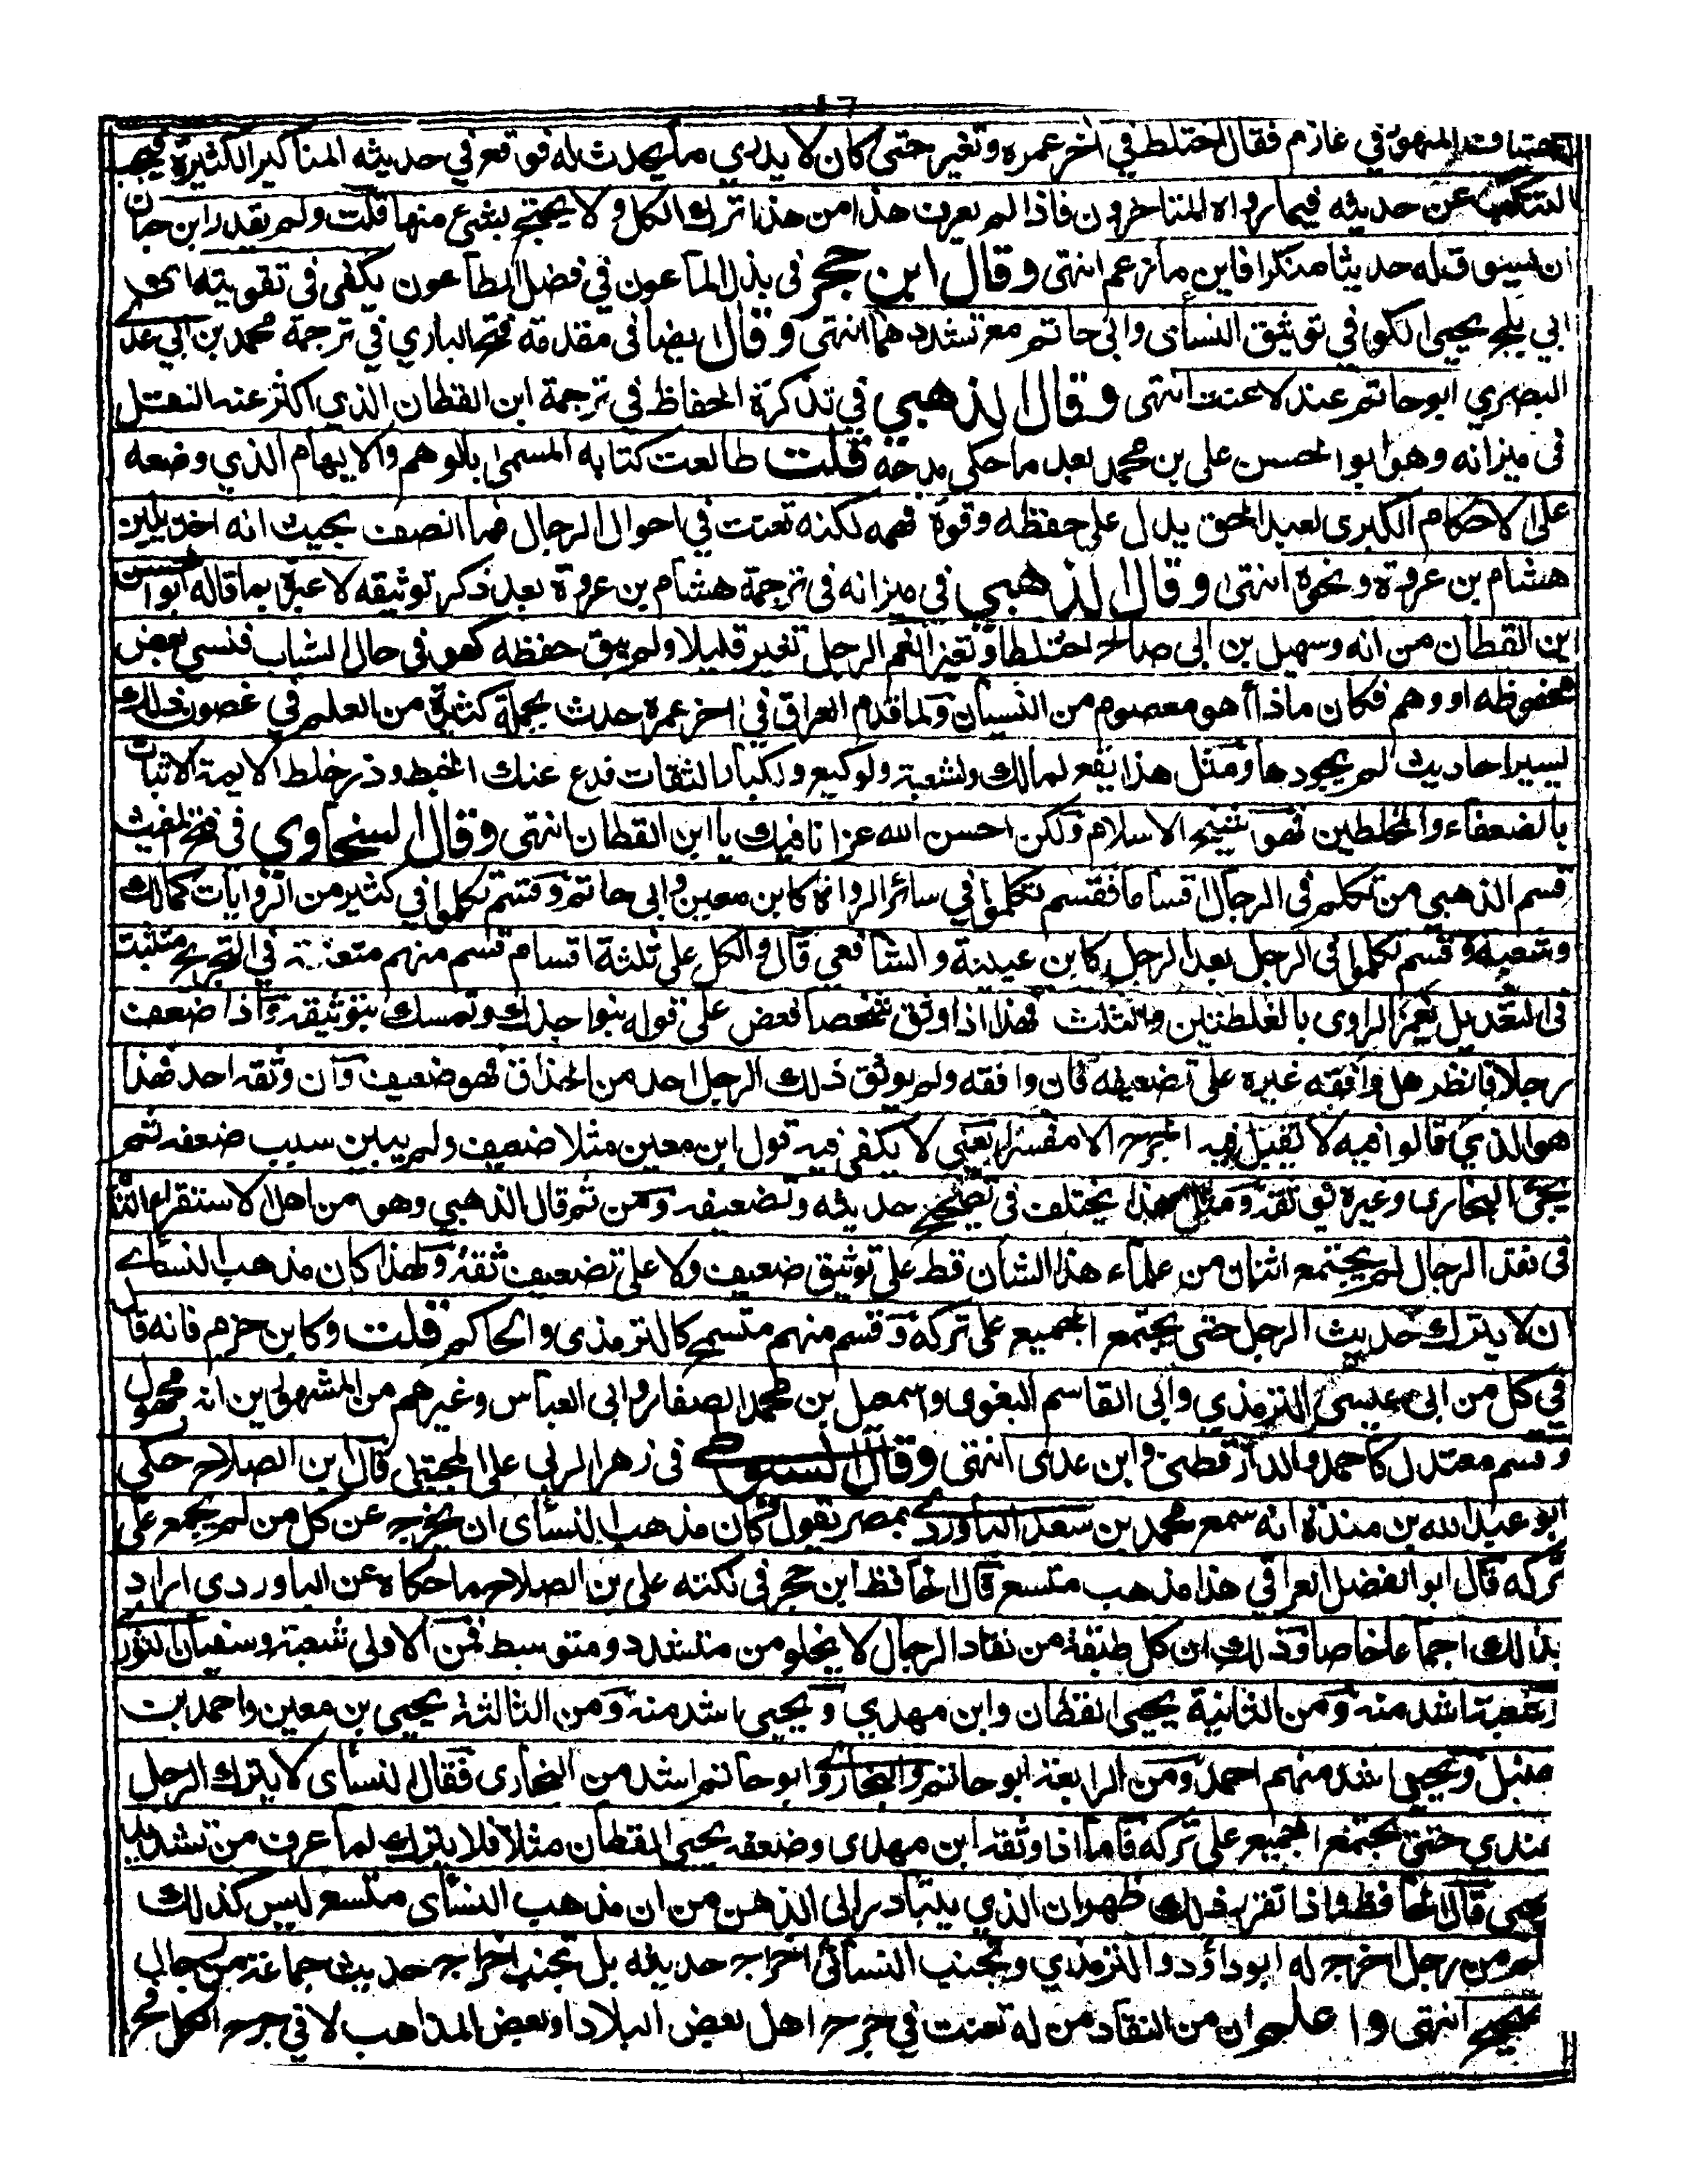 ١٦
المتهور في عارم فقال اختلط في آخر عمره وتغير حتى كان لا يدري ما يحدث له فوقع في حديثه المناكير الكثيرة فيجب
التنكب عن حديثه فيما رواه المتاخرون فاذا لم يعرف هذا من هذا ترك الكل ولا يحتج بشئ منها قلت ولم يقدر ابن حبان
ان يسوق قبله حديثا منكرا فاين ما زعم انتهى وقال ابن حجر فى بذل الماعون في فضل الطاعون يكفى فى تقويته اى
ابي بلج يحيى الكوفي توثيق النسأى وابى حاتم مع تشددهما انتهى وقال ايضا فى مقدمة فتح الباري في ترجمة محمد بن ابي عدي
البصري ابو حاتم عنده لا عنت انتهى وقال الذهبي في تذكرة الحفاظ فى ترجمة ابن القطان الذي اكثر عنه النقل
فى ميزانه وهو ابو الحسن على بن محمد بعد ما حكى مدحه قلت طالعت كتابه المسمى بالوهم والايهام الذي وضعه
على الاحكام الكبرى لعبد الحق يدل على حفظه وقوة فهمه لكنه تعنت في احوال الرجال فما انصف بحيث انه اخذ يلين
هشام بن عروة ونحوه انتهى وقال الذهبي فى ميزانه فى ترجمة هشام بن عروة بعد ذكر توثيقه لا عبرة بما قاله ابو الحسن
ابن القطان من انه وسهيل بن ابى صالح اختلطا وتغيرا نعم الرجل تغير قليلا ولم يبق حفظه كهو فى حال الشباب فنسي بعض
محفوظه او وهم فكان ماذا أهو معصوم من النسيان ولما قدم العراق في اخر عمره حدث بجملة كثيرة من العلم في غصون ذلك
يسير احاديث لم يجودها ومثل هذا يقع لمالك ولشعبة ولوكيع ولكبار الثقات فدع عنك الخبط وذر خلط الايمة الاثبات
بالضعفاء والمخلطين فهو شيخ الاسلام ولكن احسن الله عزانا فيك يا ابن القطان انتهى وقال السخاوي فى فتح المغيث
قسم الذهبي من تكلم فى الرجال اقساما فقسم تكلموا في سائر الرواة كابن معين وابى حاتم وقسم تكلموا في كثير من الروايات كمالك
وشعبة وقسم تكلموا فى الرجل بعد الرجل كابن عيينة والشافعي قال والكل على ثلثة اقسام قسم منهم متعنت في التجريح متثبت
فى التعديل يغمز الراوى بالغلطتين والثلث فهذا اذا وثق شخصا فعض على قوله بنواجذك وتمسك بتوثيقه واذا ضعف
رجلا فانظر هل وافقه غيره على تضعيفه فان وافقه ولم يوثق ذلك الرجل احد من الحذاق فهو ضعيف وان وثقه احد فهذا
هو الذي قالوا فيه لا يقبل فيه الجرح الا مفسرا يعني لا يكفي فيه قول ابن معين مثلا ضعيف ولم يبين سبب ضعفه ثم
يجئ البخارى وغيره يوثقه ومثل هذا يختلف فى تصحيح حديثه وتضعيفه ومن ثم قال الذهبي وهو من اهل الاستقراء التام
فى نقد الرجال لم يجتمع اثنان من علماء هذا الشان قط على توثيق ضعيف ولا على تضعيف ثقة ولهذا كان مذهب النسأي
ان لا يترك حديث الرجل حتى يجتمع الجميع على تركه وقسم منهم متسمح كالترمذى والحاكم قلت وكابن حزم فانه قال
في كل من ابى عيسى الترمذي وابى القاسم البغوى واسمعيل بن محمد الصفار وابى العباس وغيرهم من المشهورين انه مجهول
وقسم معتدل كاحمد والدارقطنى وابن عدى انتهى وقال السيوطي فى زهر الربى على المجتبى قال ابن الصلاح حكى
ابو عبد الله بن مندة انه سمع محمد بن سعد الباوردي بمصر يقول كان مذهب النسأى ان يخرج عن كل من لم يجمع على
تركه قال ابو الفضل العراقي هذا مذهب متسع قال الحافظ ابن حجر فى نكته على بن الصلاح ما حكاه عن الباوردى اراد
بذلك اجماعا خاصا وذلك ان كل طبقة من نقاد الرجال لا يخلو من متشدد ومتوسط فمن الاولى شعبة وسفيان الثوري
وشعبة اشد منه ومن الثانية يحيى القطان وابن مهدي ويحيى اشد منه ومن الثالثة يحيى بن معين واحمد بن
حنبل ويحيى اشد منهم احمد ومن الرابعة ابو حاتم والبخاري وابو حاتم اشد من البخارى فقال النسأى لا يترك الرجل
عندي حتى يجتمع الجميع على تركه فاما اذا وثقه ابن مهدى وضعفه يحيى القطان مثلا فلا يترك لما عرف من تشديد
يحيى قال الحافظ واذا تقرر ذلك ظهر ان الذي يتبادر الى الذهن من ان مذهب النسأى متسع ليس كذلك
فكم من رجل اخرج له ابو داؤد والترمذي وتجنب النسأئي اخراج حديثه بل تجنب اخراج حديث جماعة من رجال
الصحيح انتهى واعلم ان من النقاد من له تعنت في جرح اهل بعض البلاد او بعض المذاهب لا في جرح الكل فح